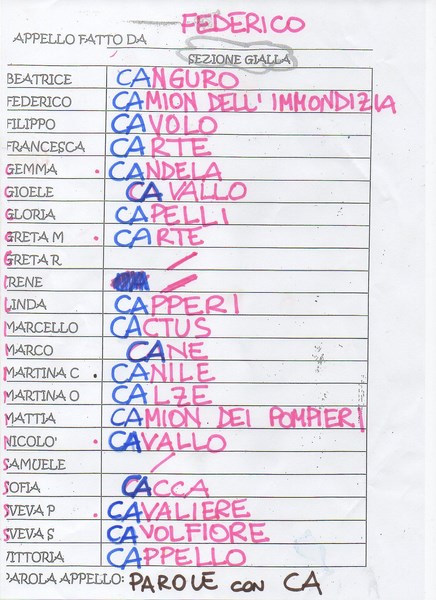 APPELLO FATTO DA FEDERICO
SEZIONE GIALLA
BEATRICE CANGURO
FEDERICO CAMION DELL'IMMONDIZIA
FILIPPO CAVOLO
FRANCESCA CARTE
GEMMA CANDELA
GIOELE CAVALLO
GLORIA CAPELLI
GRETA M CARTE
GRETA R
IRENE CA
LINDA CAPPERI
MARCELLO CACTUS
MARCO CANE
MARTINA C CANILE
MARTINA O CALZE
MATTIA CAMION DEI POMPIERI
NICOLO' CAVALLO
SAMUELE
SOFIA CACCA
SVEVA P CAVALIERE
SVEVA S CAVOLFIORE
VITTORIA CAPPELLO
PAROLA APPELLO: PAROLE CON CA